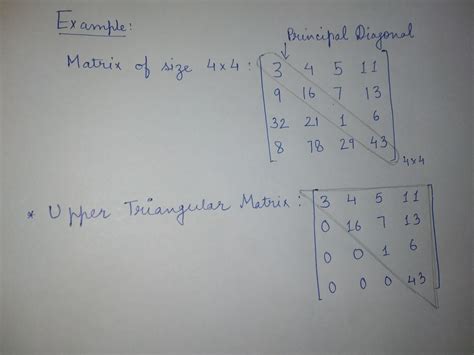 Example:
Principal Diagonal
Matrix of size 4x4 : 3 4 5 11
9 16 7 13
32 21 1 6
8 78 29 43
4x4
* Upper Triangular Matrix : 3 4 5 11
0 16 7 13
0 0 1 6
0 0 0 43